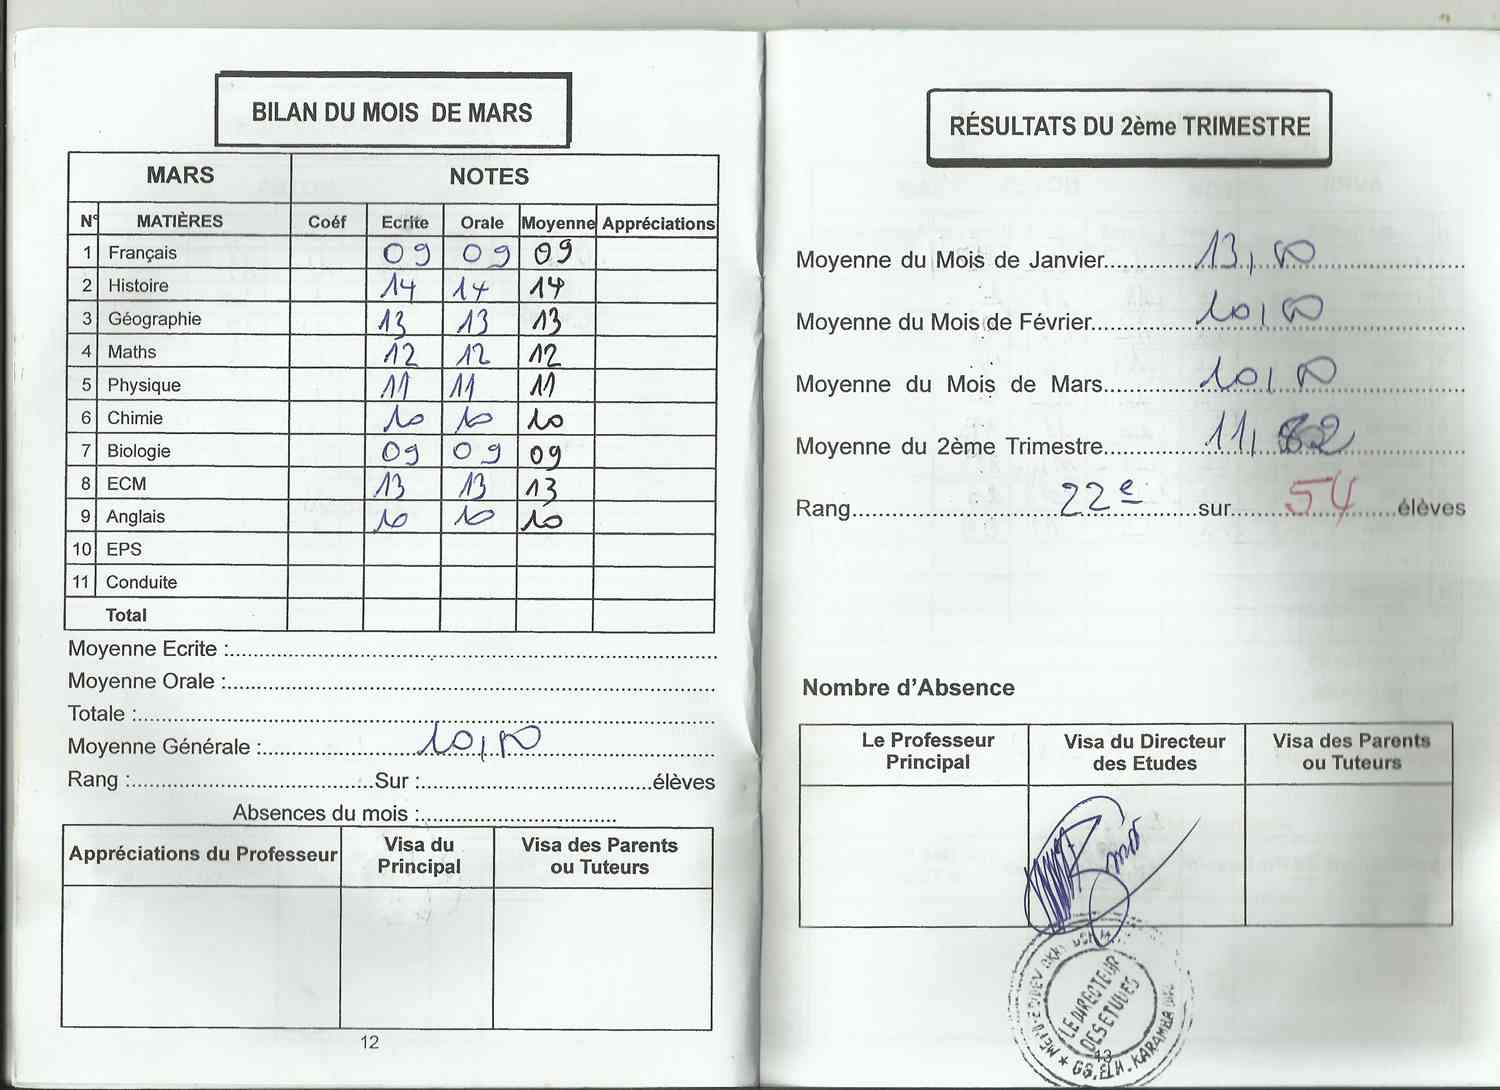 BILAN DU MOIS DE MARS
MARS NOTES
N° MATIÈRES Coéf Ecrite Orale Moyenne Appréciations
1 Français 09 09 09
2 Histoire 14 14 14
3 Géographie 13 13 13
4 Maths 12 12 12
5 Physique 11 11 11
6 Chimie 10 10 10
7 Biologie 09 09 09
8 ECM 13 13 13
9 Anglais 10 10 10
10 EPS
11 Conduite
Total
Moyenne Ecrite :
Moyenne Orale :
Totale :
Moyenne Générale : 10,00
Rang : Sur : élèves
Absences du mois :
Appréciations du Professeur
Visa du Principal
Visa des Parents ou Tuteurs
12
RÉSULTATS DU 2ème TRIMESTRE
Moyenne du Mois de Janvier 13,00
Moyenne du Mois de Février 10,00
Moyenne du Mois de Mars 10,00
Moyenne du 2ème Trimestre 11,
Rang 22e sur 54 élèves
Nombre d'Absence
Le Professeur Principal
Visa du Directeur des Etudes
Visa des Parents ou Tuteurs
LE DIRECTEUR
DES ETUDES
GS.ELH.KARAMBA
13